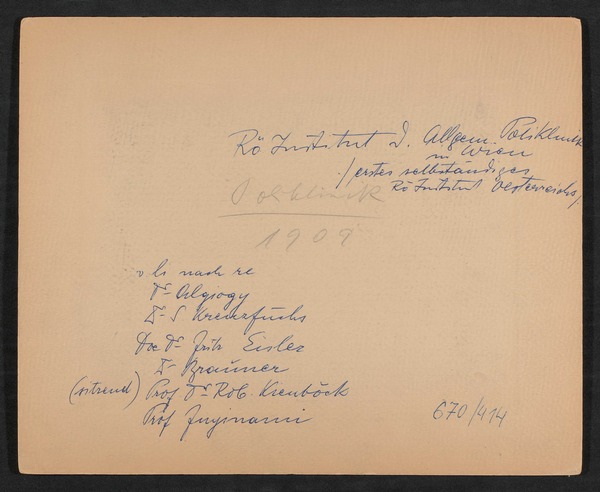 Rö Institut d. Allgem. Poliklinik
in Wien
/erstes selbständiges
Rö Institut Oesterreichs/
Poliklinik
1909
v li nach re
Dr Algiogy
Dr S Kreuzfuchs
Doc Dr Fritz Eisler
Dr Brauner
(sitzend) Prof Dr Rob. Kienböck
Prof Fujinami
670/414